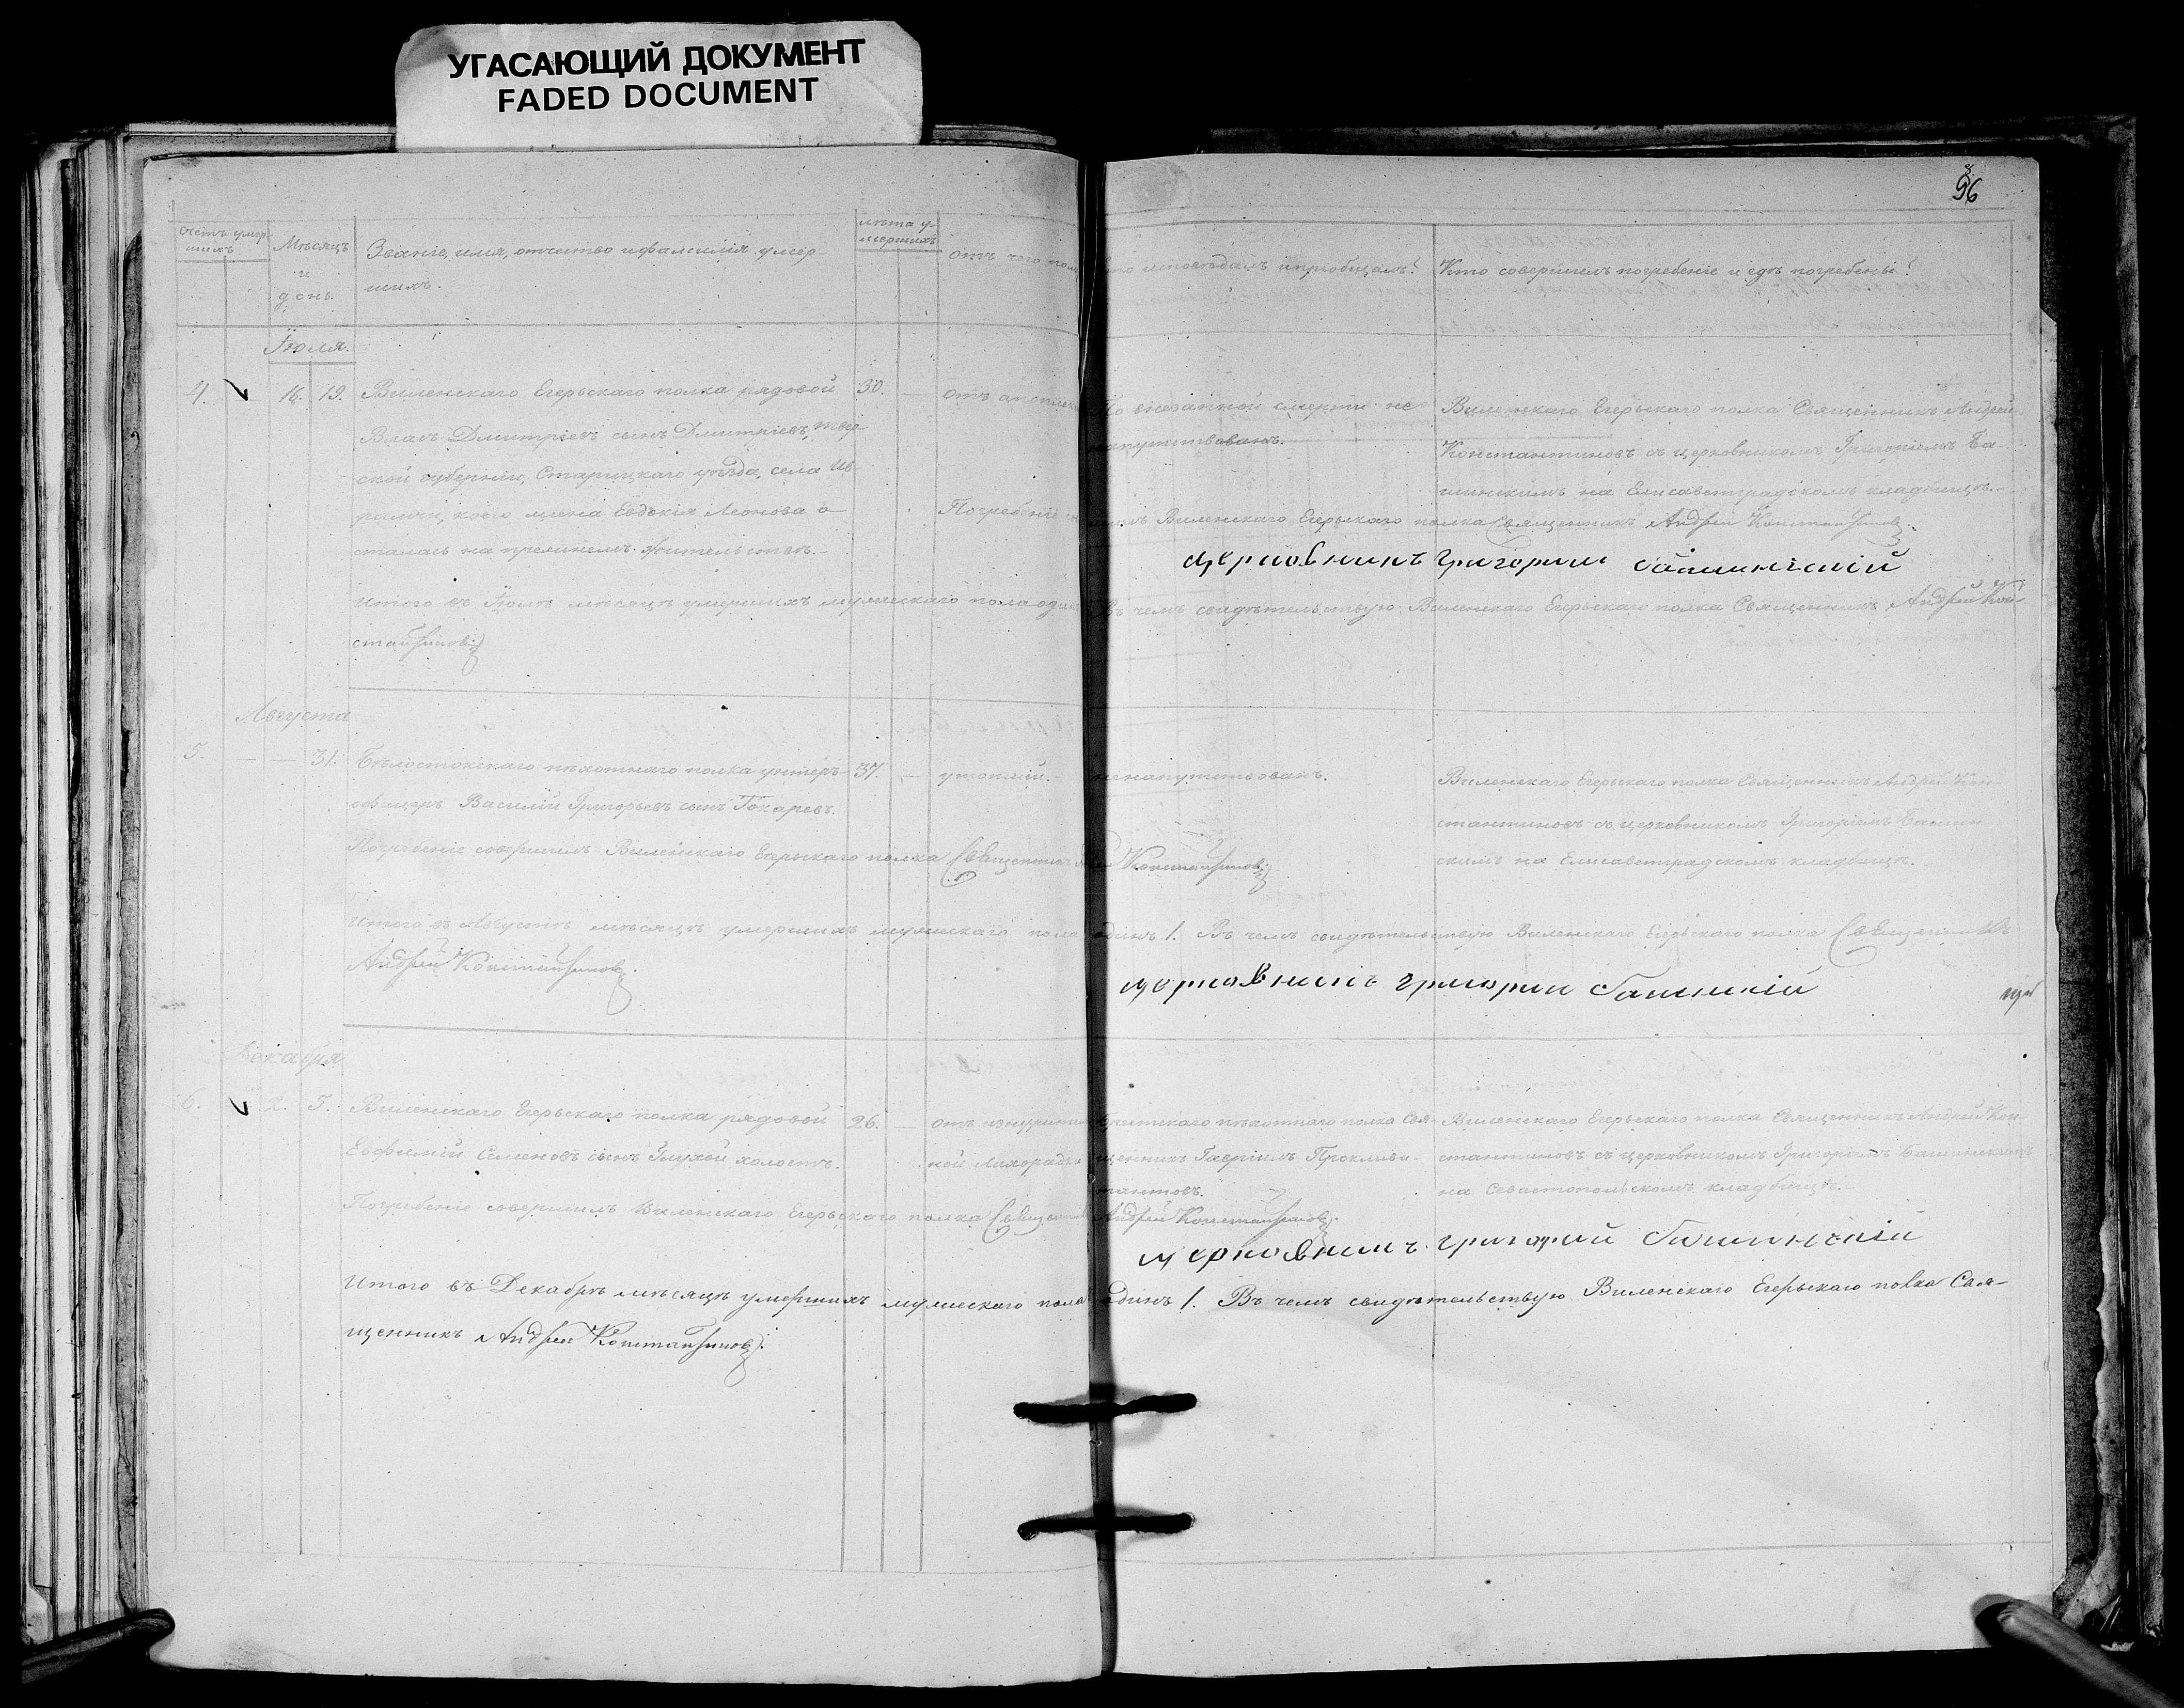 УГАСАЮЩИЙ ДОКУМЕНТ
FADED DOCUMENT
96
Счетъ умер
шихъ.
Мѣсяцъ
и
день.
Званіе, имя, отчество и фамилія умер
шихъ.
лѣта у-
мершихъ
отъ чего
исповѣдалъ и пріобщалъ?
Кто совершилъ погребеніе и гдѣ погребены?
Іюля.
4. 16. 19. Виленскаго Егерьскаго полка рядовой 30. — отъ
Дмитріевъ сынъ Дмитріевъ, Твер-
ской губерніи, Старицкаго уѣзда, села
коего жена Евдокія Леонова о-
сталась на прежнемъ жительствѣ.
По внезапной смерти не
напутствованъ.
Виленскаго Егерьскаго полка Священникъ Андрей
Константиновъ съ церковникомъ Григоріемъ Ба
шинскимъ на Елисаветградскомъ кладбищѣ.
Погребеніе Виленскаго Егерьскаго полка Священникъ Андрей Константиновъ.
церковникъ Григорий башинский
Итого въ Іюлѣ мѣсяцѣ умершихъ мужескаго пола одинъ Въ чемъ свидѣтельствую Виленскаго Егерьскаго полка Священникъ Андрей Кон-
стантиновъ
Августа
5. — — 31. Бѣлостокскаго пѣхотнаго полка унтеръ- 37. — утопшій. ненапутствованъ.
офицеръ Василій Григорьевъ сынъ Токаревъ.
Виленскаго Егерьскаго полка Священникъ Андрей Кон-
стантиновъ съ церковникомъ Григоріемъ Башин
скимъ на Елисаветградскомъ кладбищѣ.
Погребеніе совершилъ Виленскаго Егерьскаго полка Священникъ Константиновъ
Итого въ Августѣ мѣсяцѣ умершихъ мужескаго пола одинъ 1. Въ чемъ свидѣтельствую Виленскаго Егерьскаго полка Священникъ
Андрей Константиновъ.
церковникъ григории башинскій
Декабря
6. 2. 5. Виленскаго Егерьскаго полка рядовой 26. — отъ изнурител
Евфимій Семеновъ сынъ Глухой холостъ. ной лихорадки
пѣхотнаго полка Свя-
щенникъ Гавріилъ
Виленскаго Егерьскаго полка Священникъ Андрей Кон-
стантиновъ съ церковникомъ Григоріемъ Башинскимъ
на Севастопольскомъ кладбищѣ.
Погребеніе совершилъ Виленскаго Егерьскаго полка Священникъ Андрей Константиновъ.
церковникъ григорий башинскій
Итого въ Декабрѣ мѣсяцѣ умершихъ мужескаго пола одинъ 1. Въ чемъ свидѣтельствую Виленскаго Егерьскаго полка Свя-
щенникъ Андрей Константиновъ.